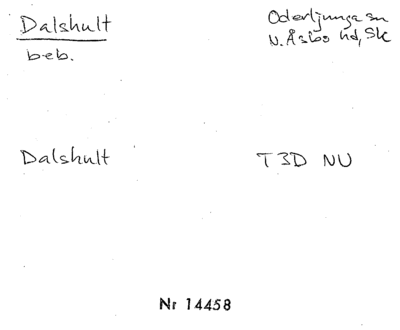 Dalshult
beb.
Oderljunga sn
N. Åsbo hd, Sk
Dalshult
T3D NU
Nr 14458